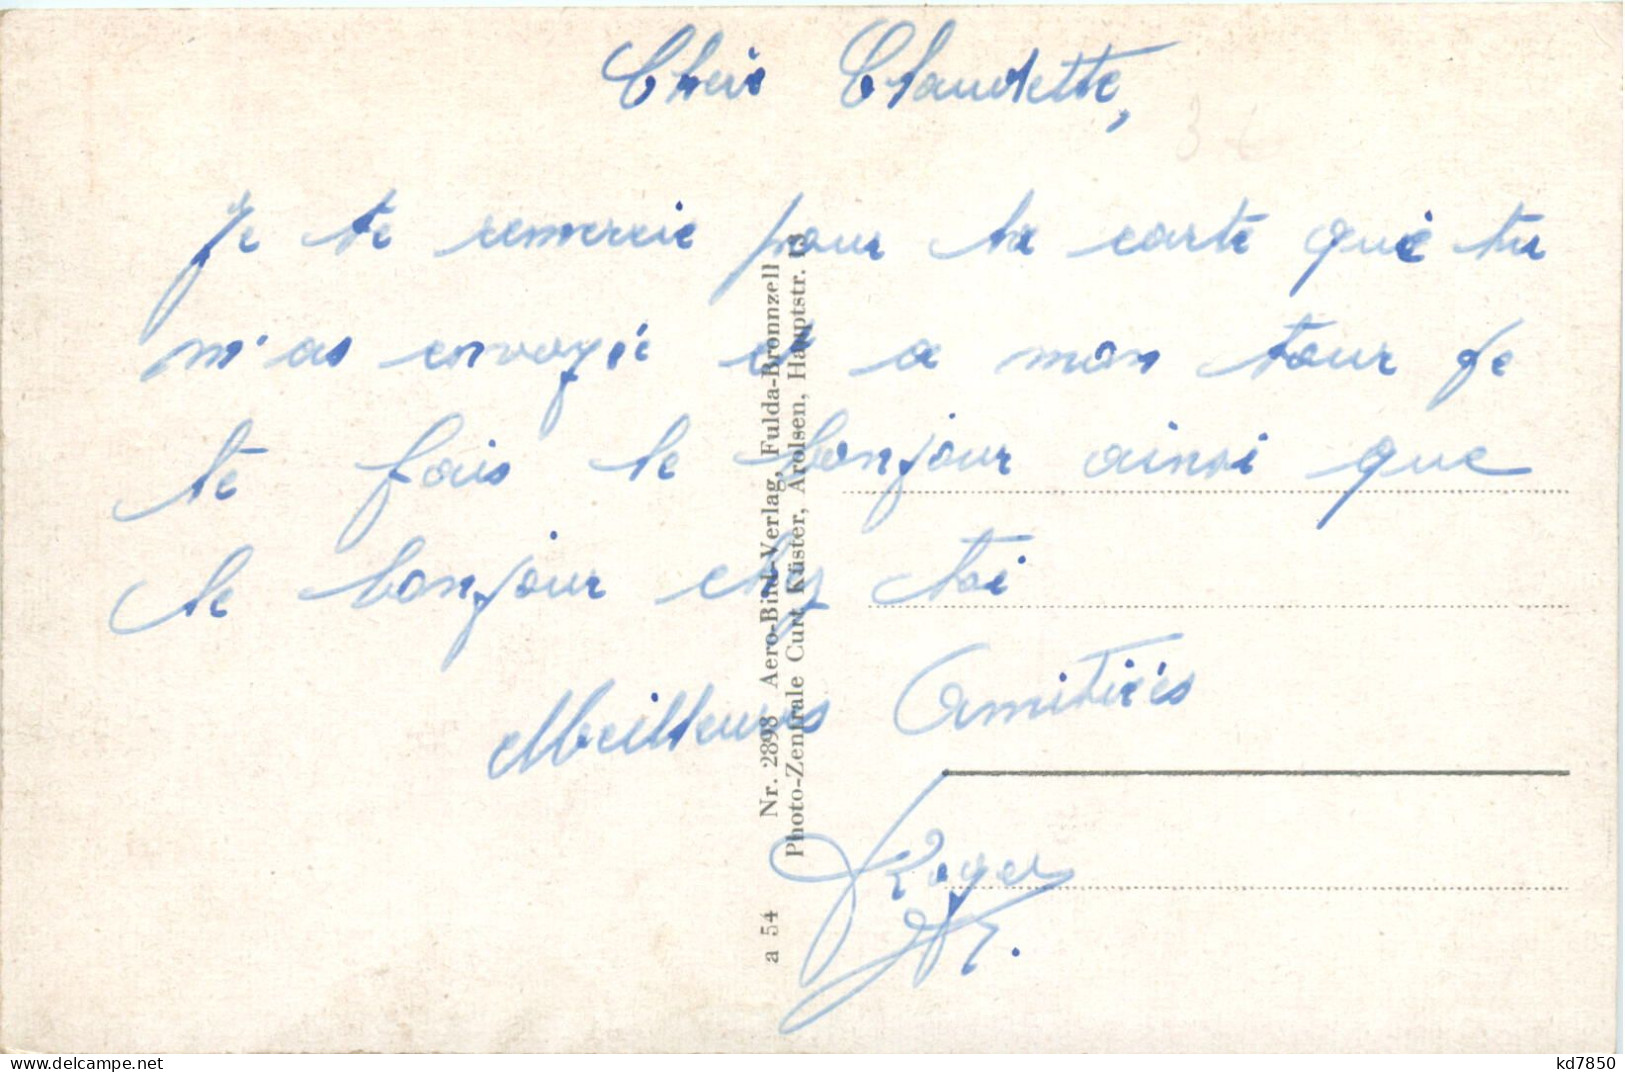 Cheis Claudette,
Je te remercie pour ta carte que tu
m'as envoyé et a mon tour je
te fais le bonjour ainsi que
le bonjour chez toi
Meilleures Amitiés
Roger
a 54 Nr. 2893 Aero-Bild-Verlag, Fulda-Bronnzell
Photo-Zentrale Curt Küster, Arolsen, Hauptstr. 13
delcampe.net
kd7850